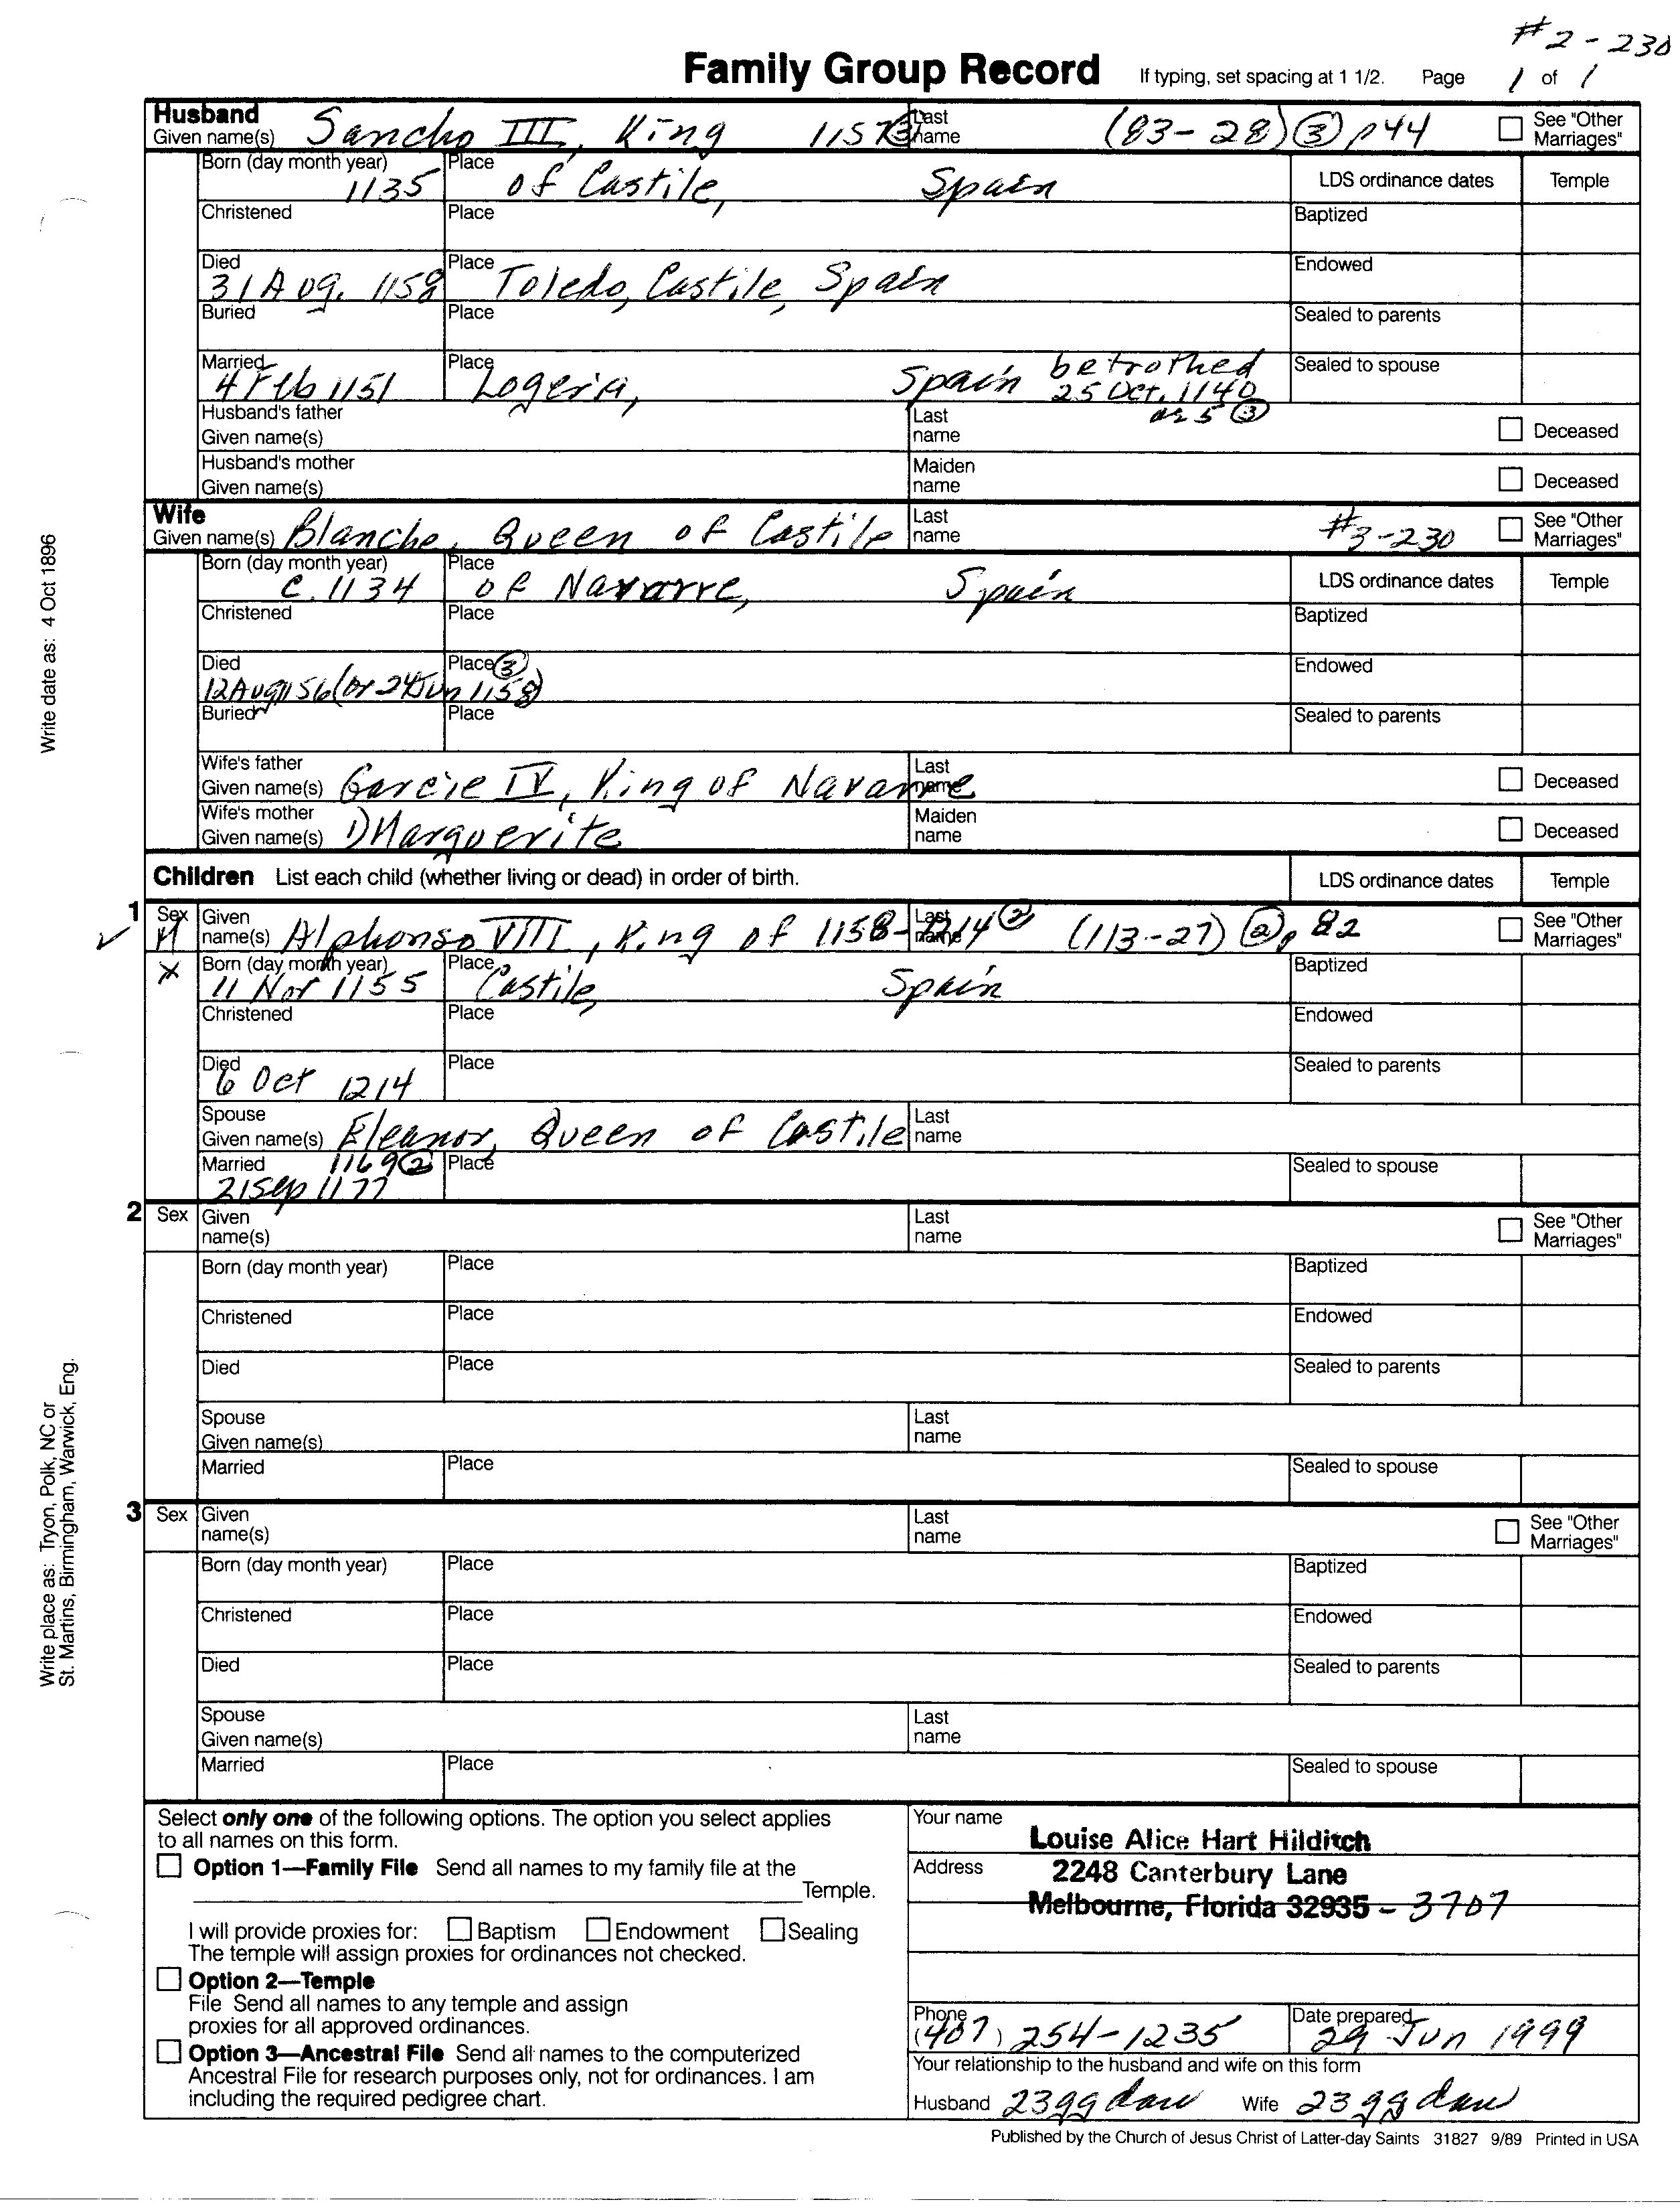 #2-230
Family Group Record If typing, set spacing at 1 1/2. Page 1 of 1
Husband
Given name(s) Sancho III, King 1157 ③ Last name (83-28) ③ p44 See "Other Marriages"
Born (day month year) 1135 Place of Castile, Spain LDS ordinance dates Temple
Christened Place Baptized
Died 31 Aug. 1158 Place Toledo, Castile, Spain Endowed
Buried Place Sealed to parents
Married 4 Feb 1151 Place Logeria, Spain betrothed 25 Oct. 1140 as 5 ③ Sealed to spouse
Husband's father Given name(s) Last name Deceased
Husband's mother Given name(s) Maiden name Deceased
Wife
Given name(s) Blanche, Queen of Castile Last name #3-230 See "Other Marriages"
Born (day month year) c. 1134 Place of Navarre, Spain LDS ordinance dates Temple
Christened Place Baptized
Died 12 Aug 1156 (or 24 Jun 1158) Place ③ Endowed
Buried Place Sealed to parents
Wife's father Given name(s) Garcie IV, King of Navarre Last name Deceased
Wife's mother Given name(s) 1) Marguerite Maiden name Deceased
Children List each child (whether living or dead) in order of birth. LDS ordinance dates Temple
1 Sex M Given name(s) Alphonso VIII, King of 1158-1214 ② Last name (113-27) ②, 82 See "Other Marriages"
X Born (day month year) 11 Nov 1155 Place Castile, Spain Baptized
Christened Place Endowed
Died 6 Oct 1214 Place Sealed to parents
Spouse Given name(s) Eleanor, Queen of Castile Last name
Married 1169 ② 21 Sep 1177 Place Sealed to spouse
2 Sex Given name(s) Last name See "Other Marriages"
Born (day month year) Place Baptized
Christened Place Endowed
Died Place Sealed to parents
Spouse Given name(s) Last name
Married Place Sealed to spouse
3 Sex Given name(s) Last name See "Other Marriages"
Born (day month year) Place Baptized
Christened Place Endowed
Died Place Sealed to parents
Spouse Given name(s) Last name
Married Place Sealed to spouse
Select only one of the following options. The option you select applies
to all names on this form.
Option 1—Family File Send all names to my family file at the
Temple.
I will provide proxies for: Baptism Endowment Sealing
The temple will assign proxies for ordinances not checked.
Option 2—Temple
File Send all names to any temple and assign
proxies for all approved ordinances.
Option 3—Ancestral File Send all names to the computerized
Ancestral File for research purposes only, not for ordinances. I am
including the required pedigree chart.
Your name Louise Alice Hart Hilditch
Address 2248 Canterbury Lane
Melbourne, Florida 32935 - 3707
Phone (407) 254-1235 Date prepared 29 Jun 1999
Your relationship to the husband and wife on this form
Husband 23 gg dau Wife 23 gg dau
Published by the Church of Jesus Christ of Latter-day Saints 31827 9/89 Printed in USA
Write date as: 4 Oct 1896
Write place as: Tryon, Polk, NC or
St. Martins, Birmingham, Warwick, Eng.